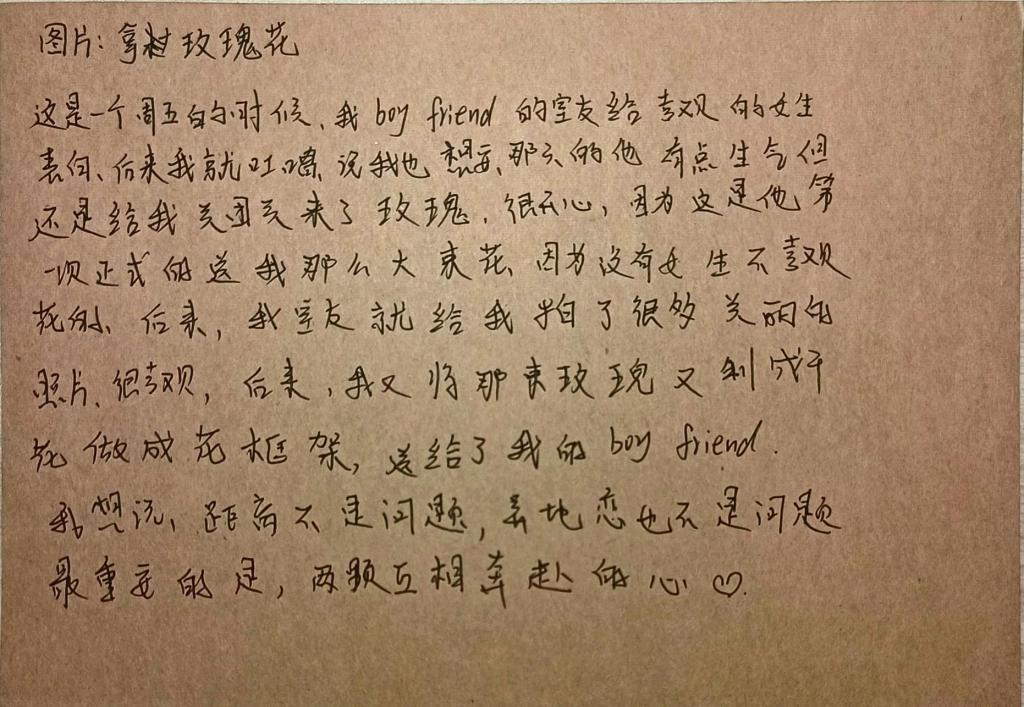 图片:拿过玫瑰花
这是一个周五的时候、我 boy friend 的室友给喜欢的女生
表白、后来我就吐嘈、说我也想要、那天的他有点生气但
还是给我美团买来了玫瑰、很开心,因为这是他第
一次正式的送我那么大束花、因为没有女生不喜欢
花的、后来,我室友就给我拍了很多美丽的
照片、很喜欢,后来,我又将那束玫瑰又制成干
花做成花框架,送给了我的 boy friend.
我想说、距离不是问题,异地恋也不是问题
最重要的是,两颗互相奔赴的心♡.